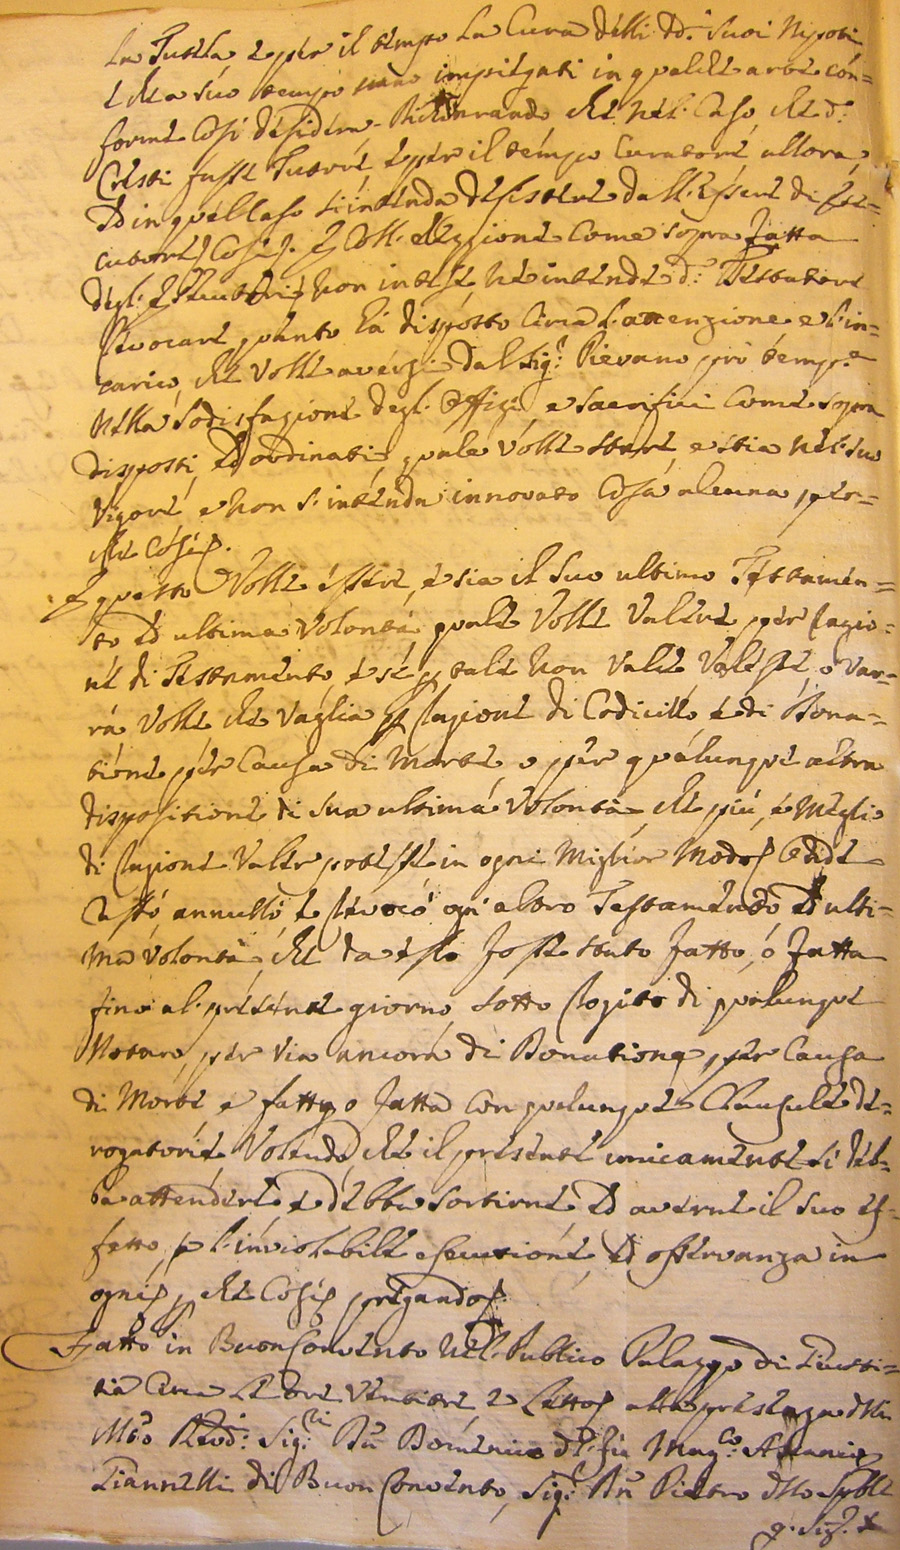 la Tutela e per il tempo la Cura delli dd.i suoi Nipoti
e che a suo tempo sieno impiegati in qualche arte con=
forme Così desidera. Dichiarando che nel Caso che d.o
Cresti fusse Tutore, e per il tempo Curatore allora,
Ed in quel Caso s'intenda desistere dall'essere di Ese=
cutore, Così. E Coll'elezzione Come sopra fatta
degl'Esecutori non intese ne intende d.o Testatore
revocare quanto hà disposto Circa l'attenzione e l'in=
carico, che volle aversi dal Sig.r Pievano prò temp.e
nella sodisfazione degl'Offizi, e sacrifici Come sopra
disposti, Ed ordinati, quale volle stare, e stia nel suo
vigore, e non s'intenda innovato Cosa alcuna per=
che Così.
E questo volle essere, e sia il suo ultimo Testamen=
to Ed ultima volontà quale volle valere per ragio=
ne di Testamento e se p tale non vale valesse, o var=
rà volle che vaglia p ragione di Codicillo e di Dona=
tione per Causa di Morte o per qualunque altra
dispositione di sua ultima volontà che più, e meglio
di ragione valer potesse in ogni Miglior Modo
Cassò, annullò, e revocò ogni altro Testamento Ed ulti=
ma volontà, che da esso fosse stato fatto, ò fatta
fino al presente giorno sotto rogito di qualunque
Notaro, per via ancora di Donatione per Causa
di Morte e fatto, o fatta Con qualunque Clausule de=
rogatorie Volendo che il presente unicamente si deb=
ba attendere e debba sortirne Ed averne il suo ef=
fetto, p l'inviolabile esecutione, Ed osservanza in
ogni p che Così pregando
Fatto in BuonConvento nel Publico Palazzo di Giusti=
tia Circa le Ore Ventitre e alla presenza delli
M.to Rev.di Sig.ri Domenico del fu Mag.co Ascanio
Giannelli di BuonConvento, Sig.r Pietro dello
q. Sig.r